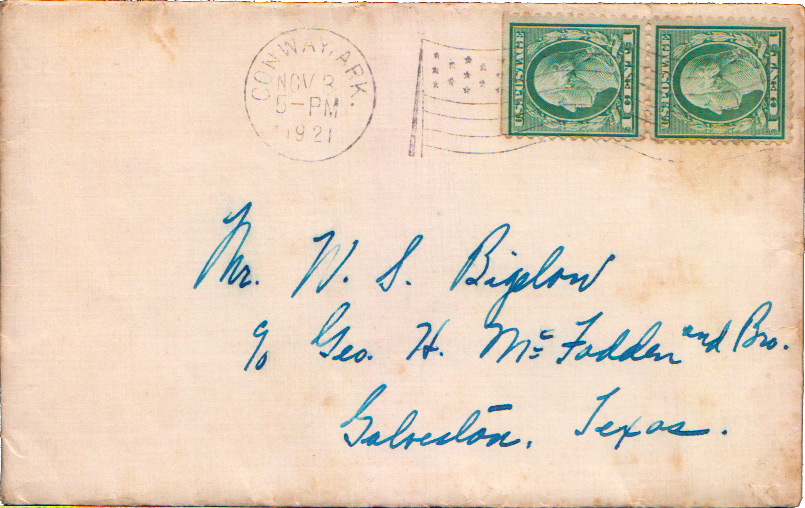 CONWAY, ARK.
NOV 3
5-PM
1921
U.S. POSTAGE
1 CENT 1
U.S. POSTAGE
1 CENT 1
Mr. W. S. Bigelow
c/o Geo. H. McFadden and Bro.
Galveston, Texas.